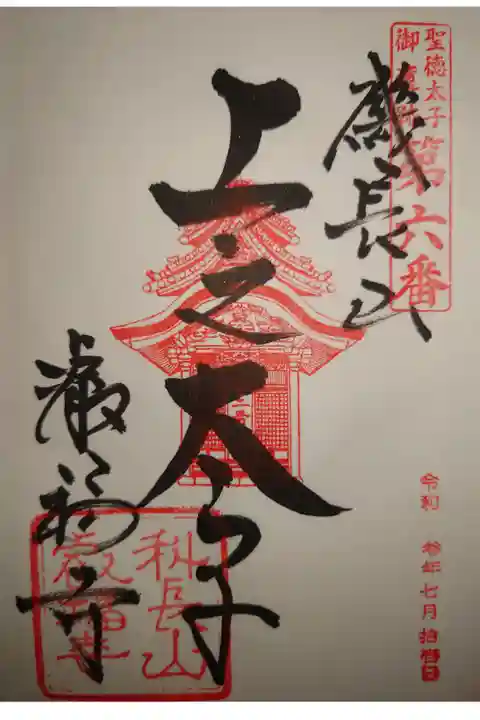 聖徳太子
御
第六番
磯長山
上之太子
叡福寺
科長山
叡福寺
令和 参年七月拾日